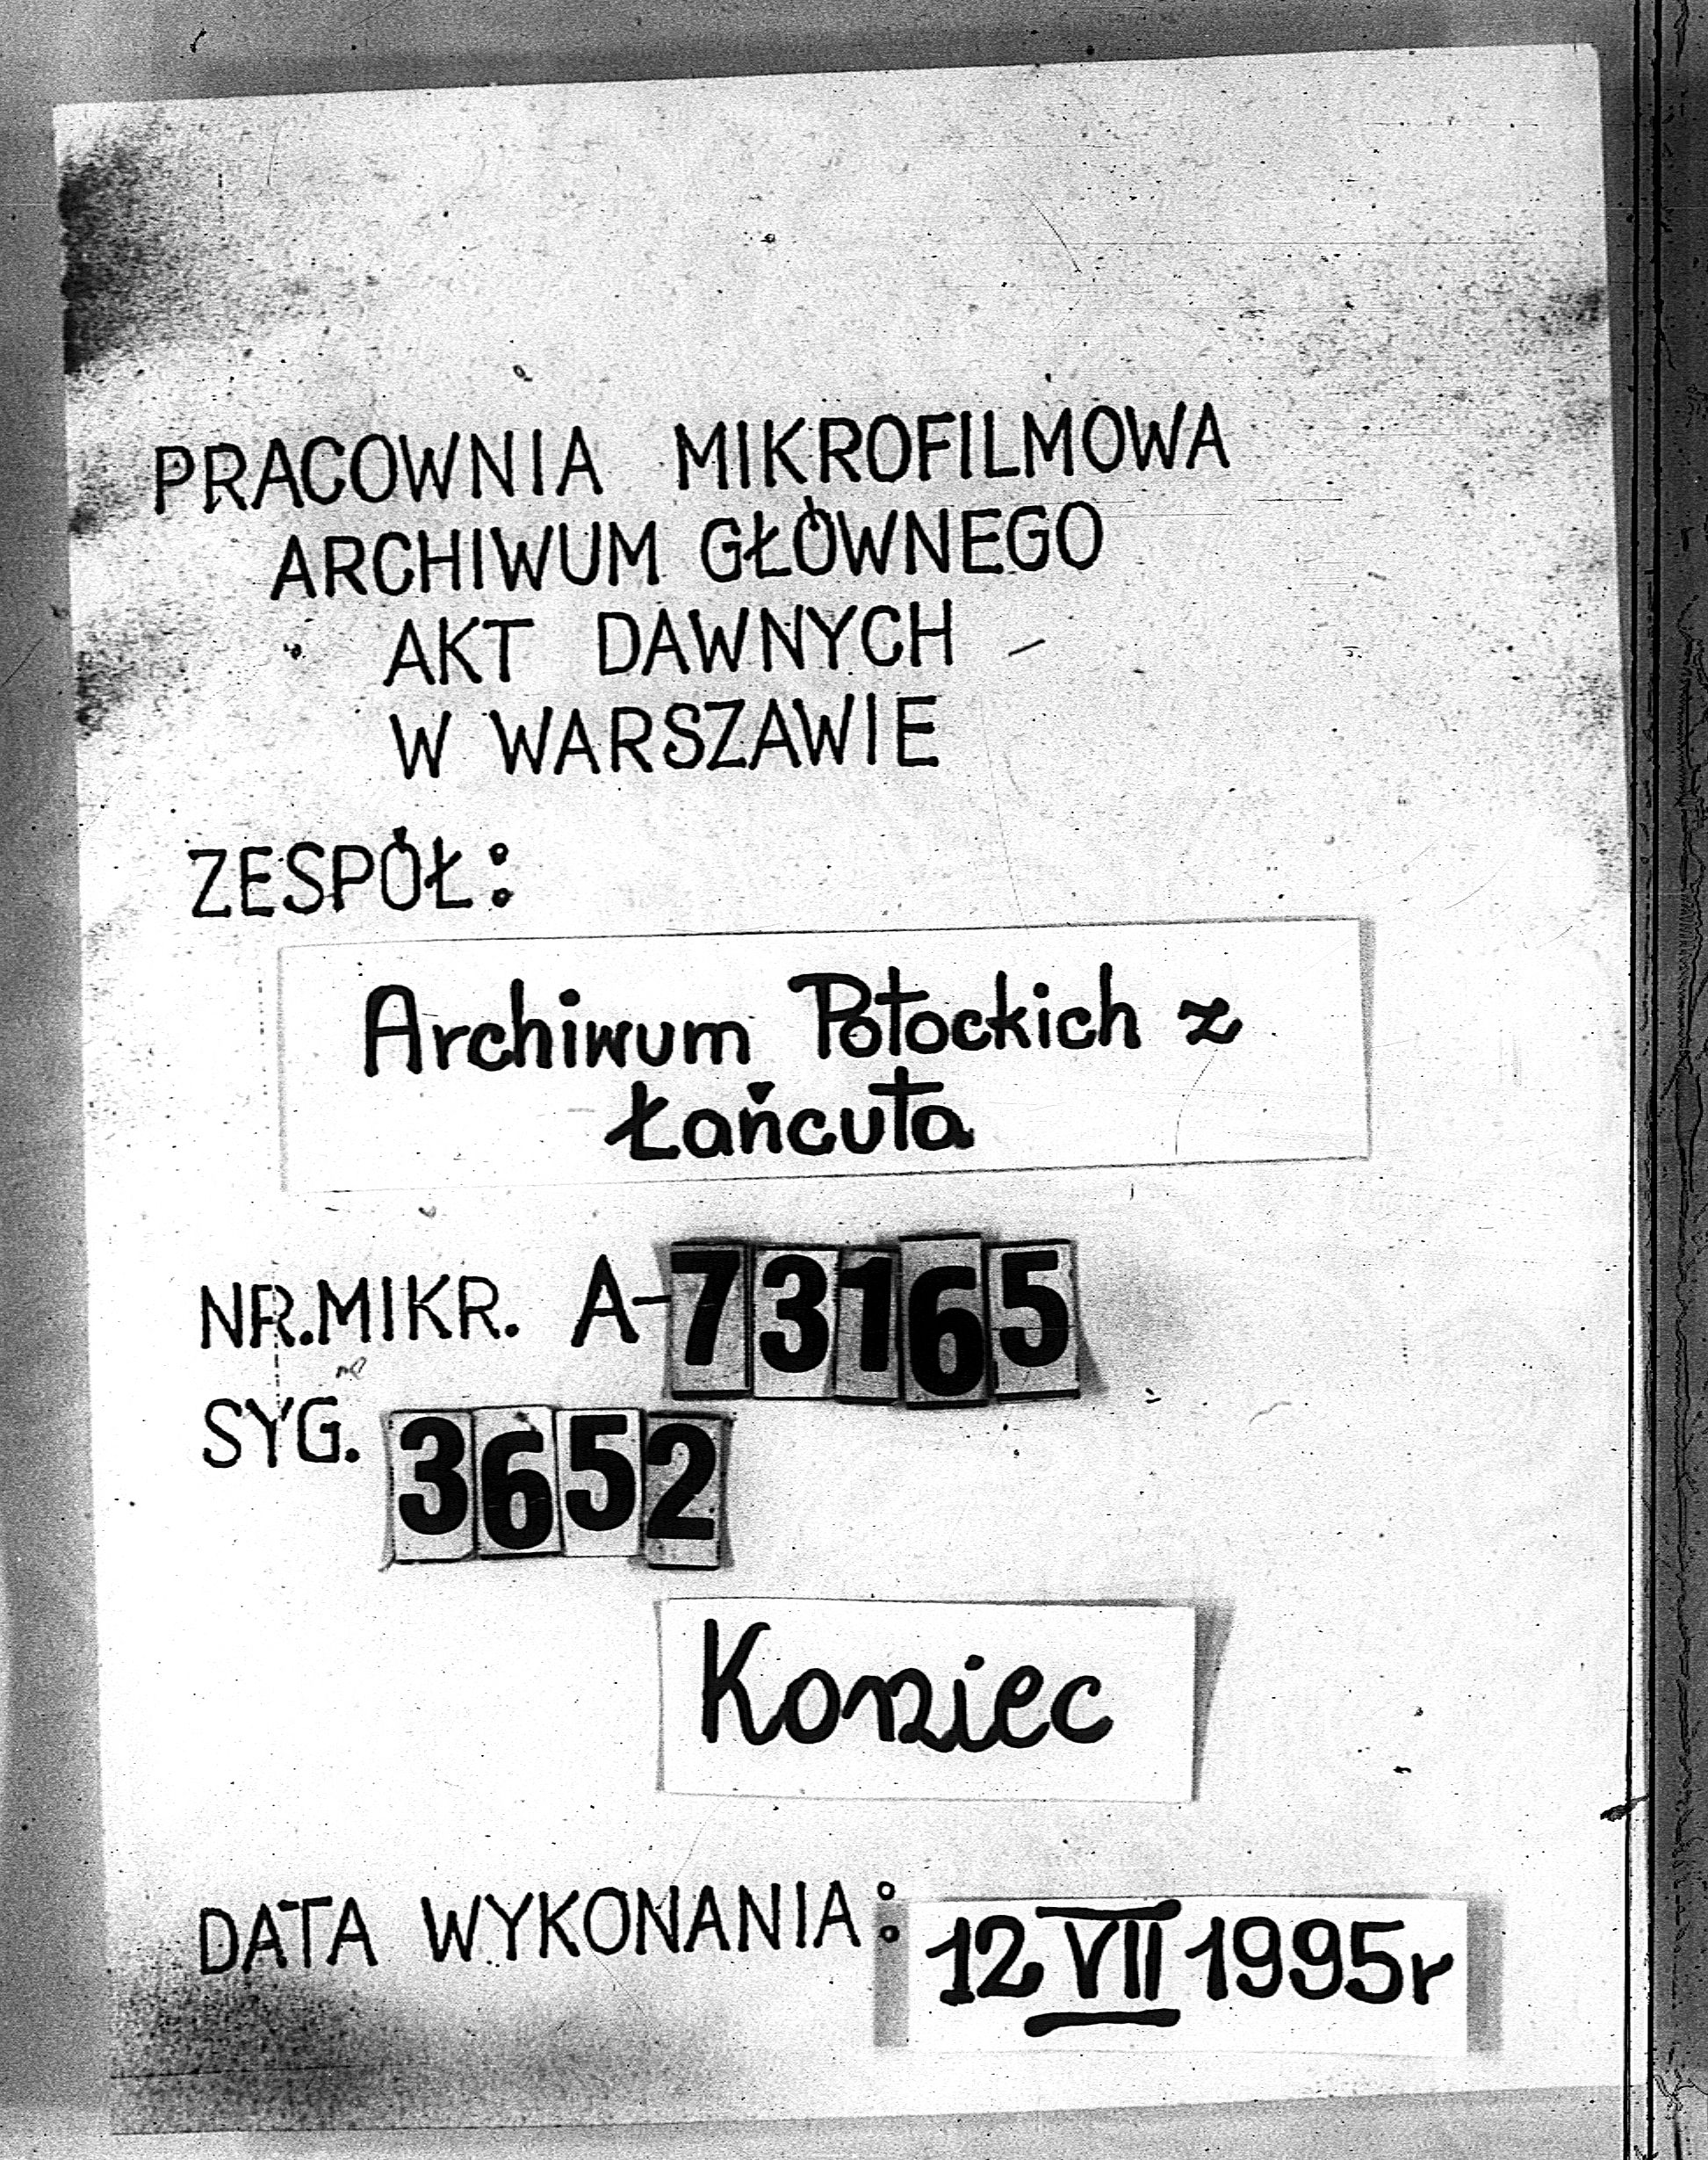 PRACOWNIA MIKROFILMOWA
ARCHIWUM GŁÓWNEGO
AKT DAWNYCH
W WARSZAWIE
ZESPÓŁ:
Archiwum Potockich z
Łańcuta
NR.MIKR. A-73165
SYG. 3652
Koniec
DATA WYKONANIA: 12 VII 1995r